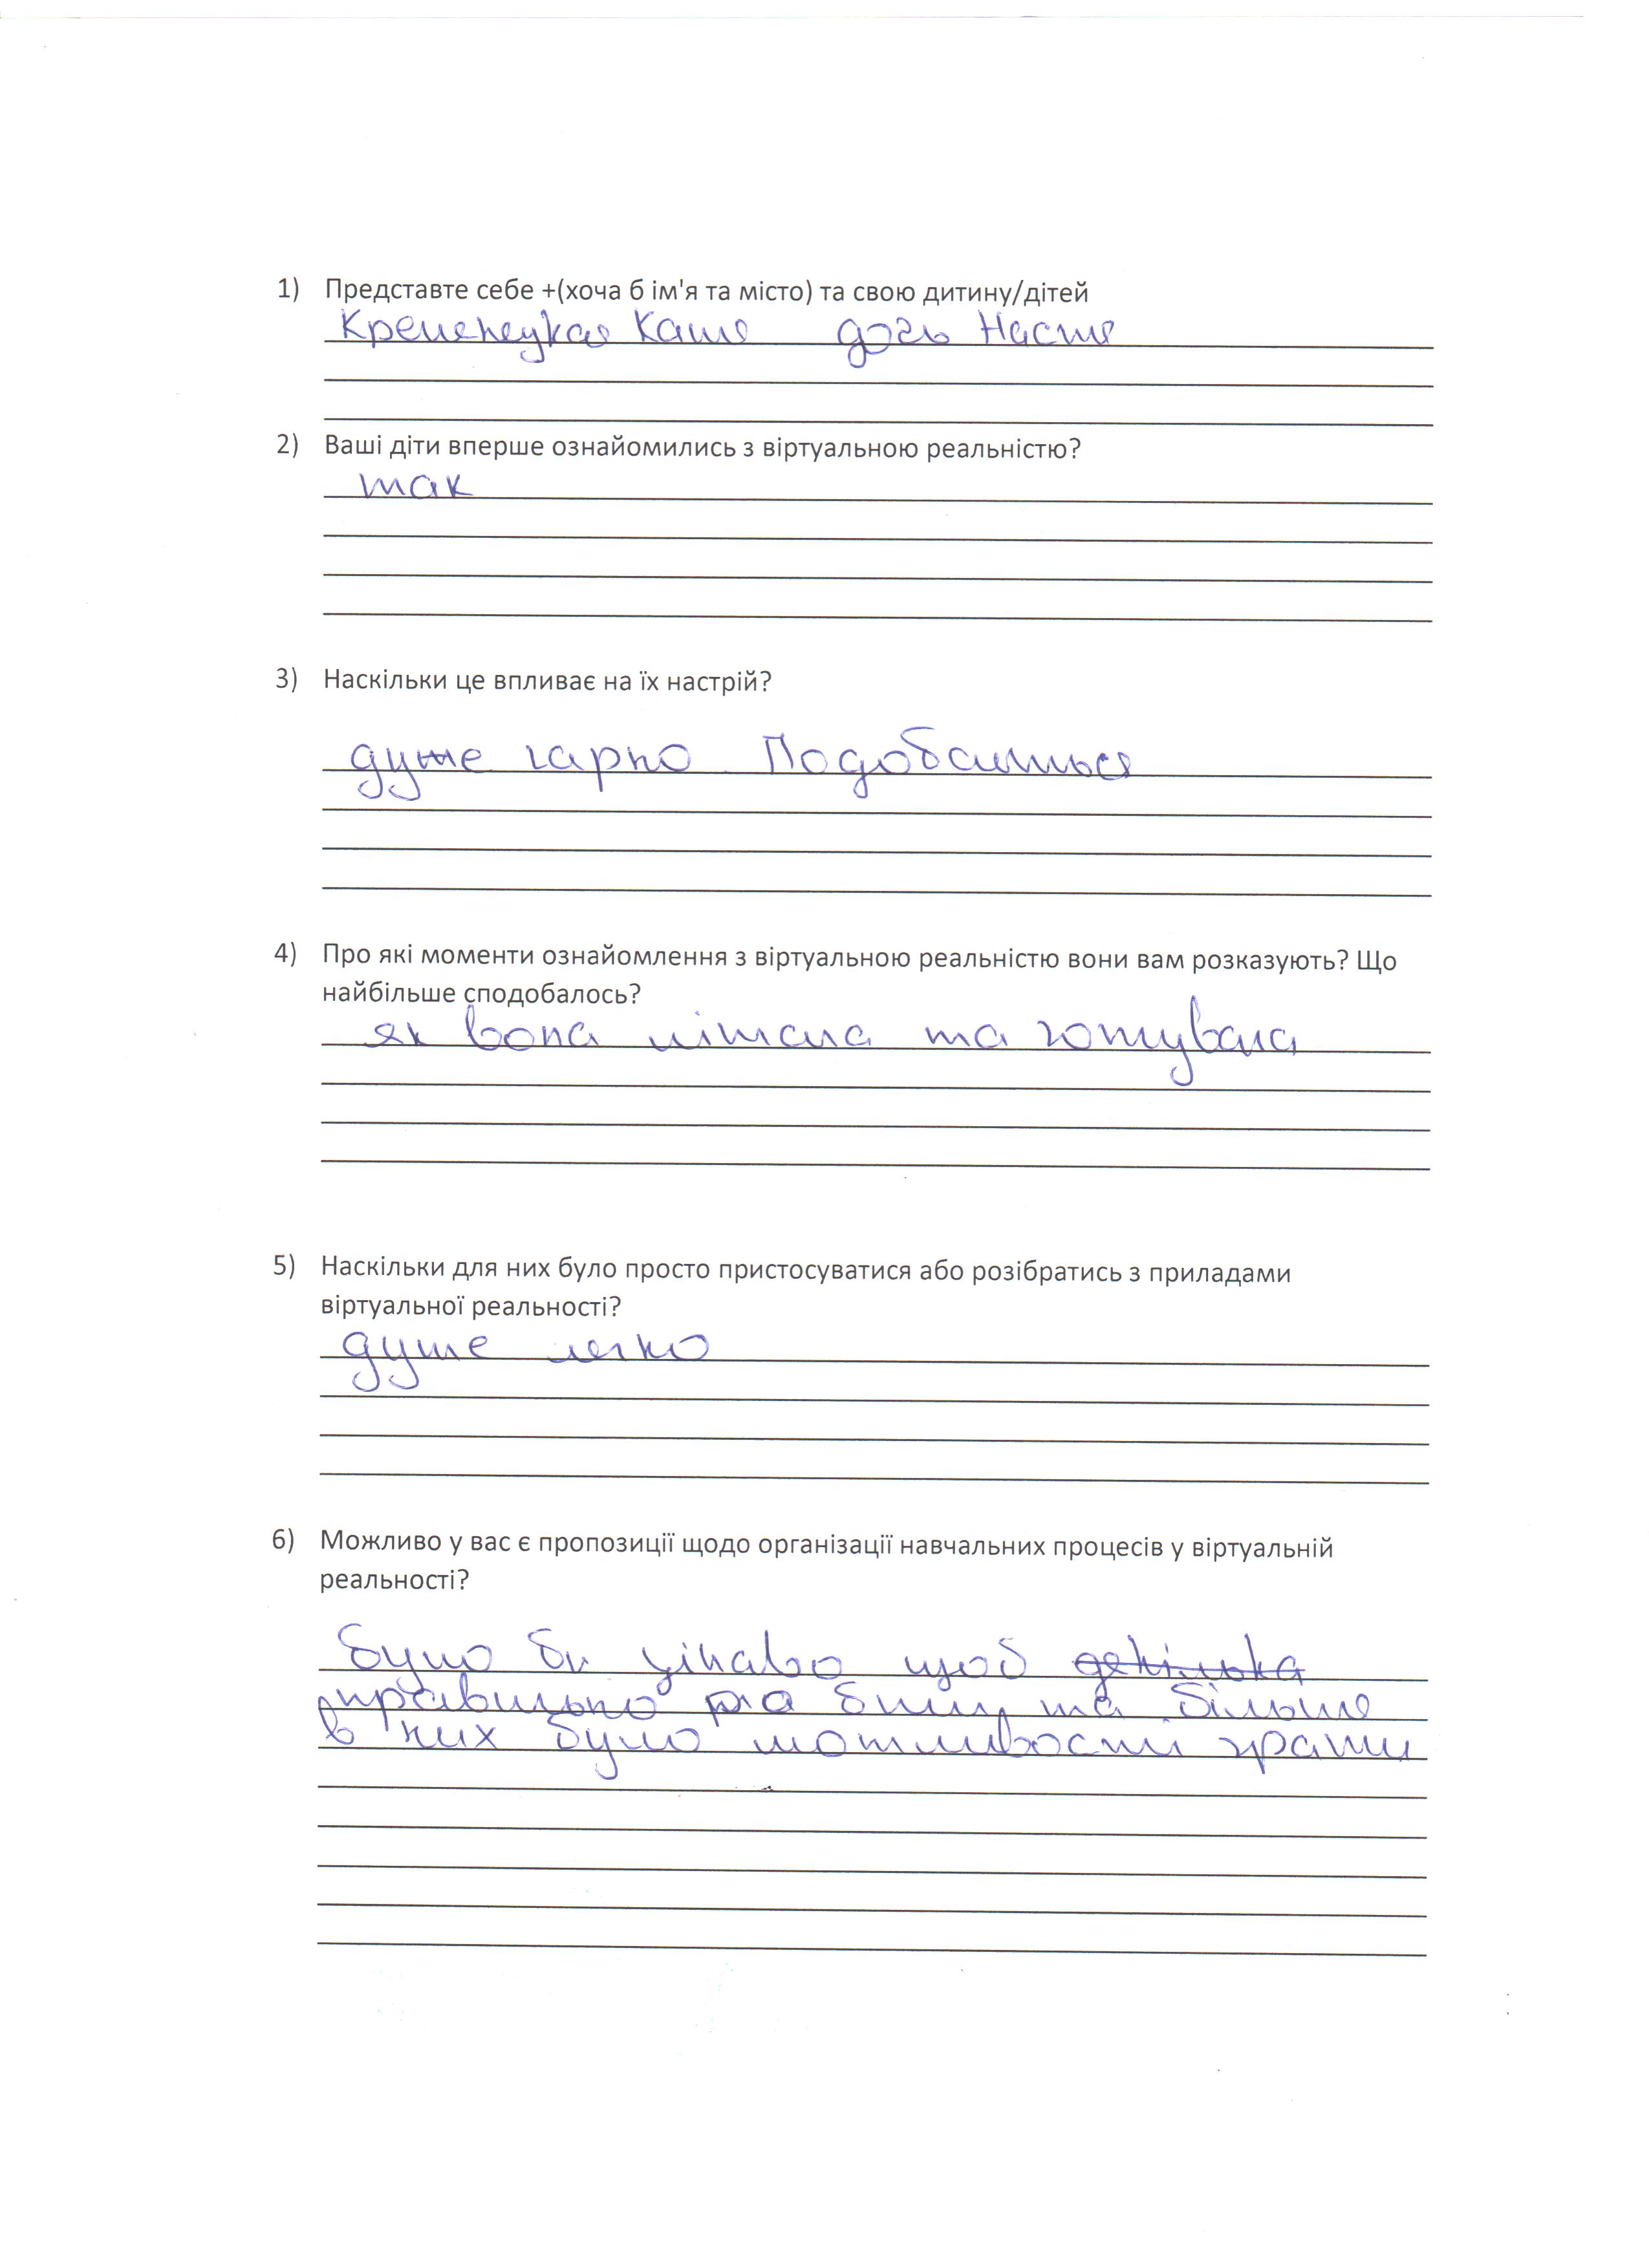 1) Представте себе +(хоча б ім'я та місто) та свою дитину/дітей
Кременецкая Катя дочь Настя
2) Ваші діти вперше ознайомились з віртуальною реальністю?
так
3) Наскільки це впливає на їх настрій?
дуже гарно Подобається
4) Про які моменти ознайомлення з віртуальною реальністю вони вам розказують? Що
найбільше сподобалось?
як вона літала та готувала
5) Наскільки для них було просто пристосуватися або розібратись з приладами
віртуальної реальності?
дуже легко
6) Можливо у вас є пропозиції щодо організації навчальних процесів у віртуальній
реальності?
було би цікаво щоб декілька
правильно та більше
в них було можливості грати